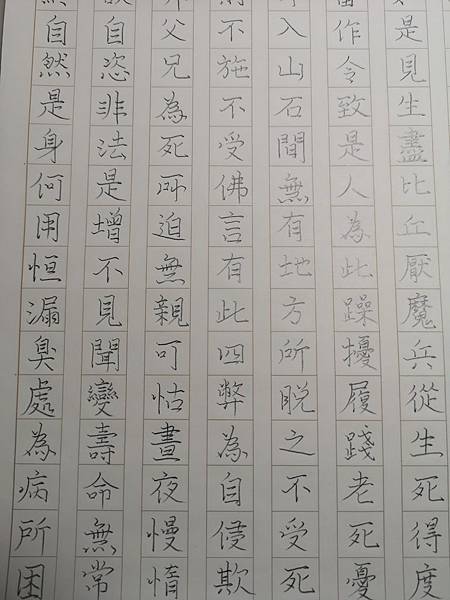 是見生盡比丘厭魔兵從生死得度
作令致是人為此躁擾履踐老死憂
入山石間無有地方所脫之不受死
不施不受佛言有此四弊為自侵欺
父兄為死所迫無親可怙晝夜慢惰
自恣非法是增不見聞變壽命無常
自然是身何用恒漏臭處為病所困